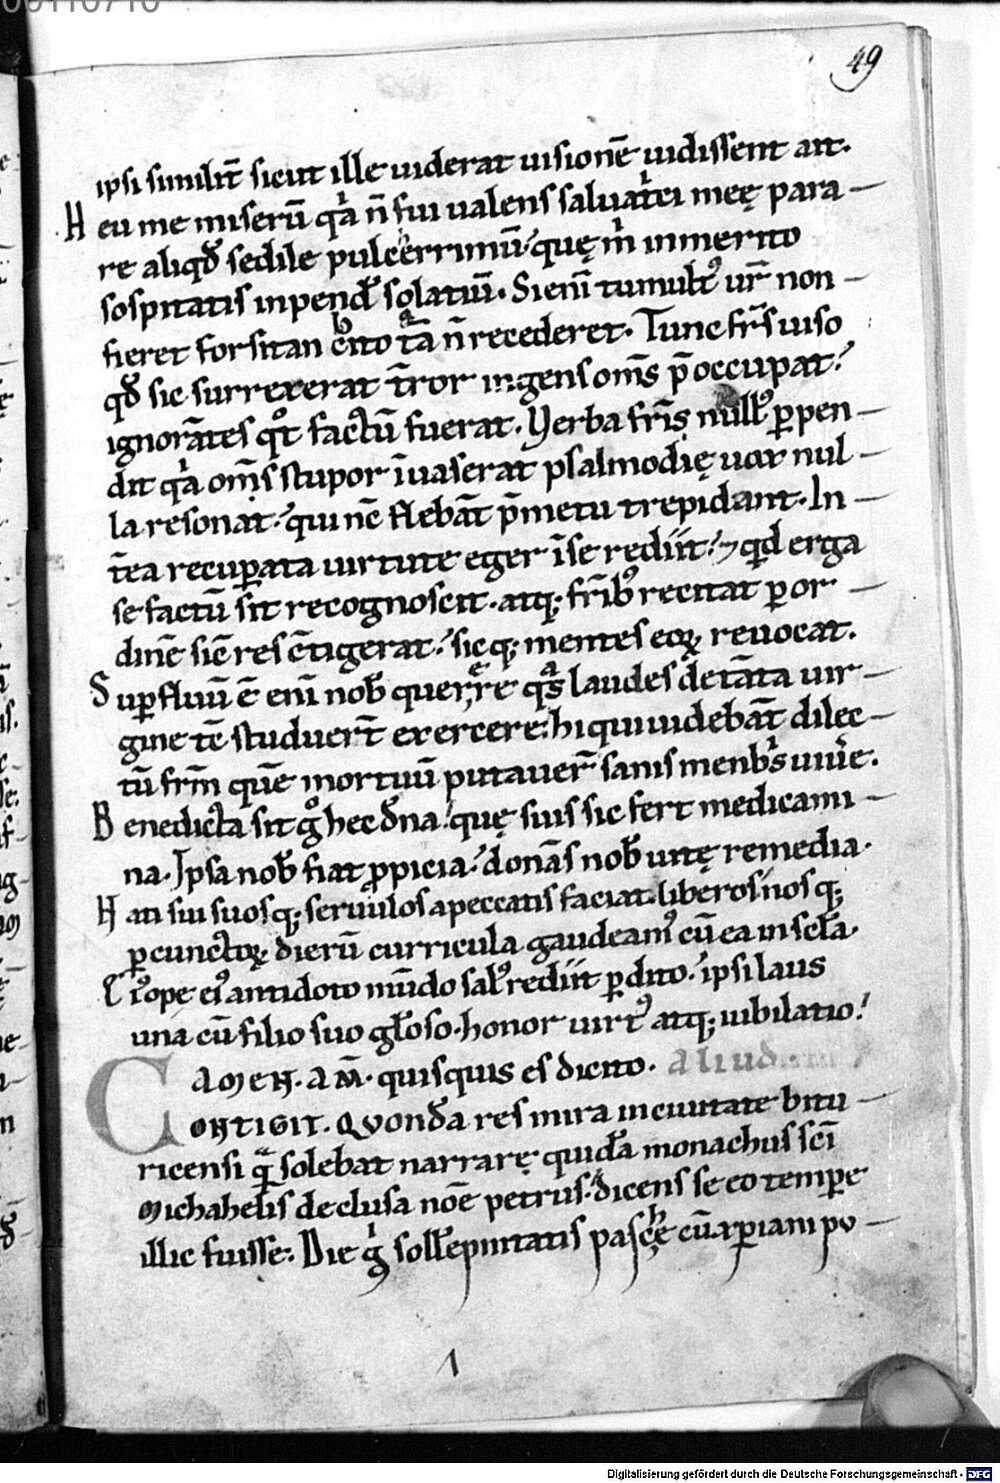 49
ipsi similit̄ sicut ille uiderat uisionē uidissent ait.
Heu me miserū qͥa n̄ fui ualens saluatͥci meę para
re aliqd̄ sedile pulcerrimū. quę m̄ inmerito
sospitatis inpend̄ solatiū. Si eni tumultꝰ ur̄ non
fieret forsitan cito tā n̄ recederet. Tunc fr̄s uiso
qd̄ sic surrexerat t̄ror ingens om̄s p̄occupat.
ignorātes qͦt factū fuerat. Verba fr̄is nullꝰ ꝑpen
dit qͥa om̄s stupor īuaserat psalmodię uox nul
la resonat. qui nc̄ flebāt p̄ metu trepidant. In
t̄ea recuꝑata uirtute eger īse rediit. ⁊ qd erga
se factū sit recognoscit. atq; fr̄ibꝰ recitat ꝑ or
dinē sic̄ res c̄tigerat. sicq; mentes eoꝝ reuocat.
Suꝑfluū ē eni nob̄ querere qͣs laudes de tāta uir
gine tc̄ studuer̄t exercere. hi qui uidebāt dilec
tū fr̄m quē mortuū putauer̄ sanis menbͥs uiuͤe.
Benedicta sit gͦ hec dn̄a. quę suis sic fert medicami
na. Ipsa nob̄ fiat ꝓpicia. donās nob̄ uitę remedia.
Nati sui suosq; seruulos a peccatis faciat liberos. nosq;
ꝑ cunctoꝝ dierū curricula gaudeamꝰ cū ea in scl̄a.
Cͥ ope eiꝰ antidoto mūdo salꝰ rediit ꝑdito. ipsi laus
una cū filio suo gl̄oso. honor uirtꝰ atq; iubilatio.
AMEN. AM̄. quisquis es dicito. Aliud
CONTIGIT. QVONDā res mira in ciuitate bitu
ricensi qͣ̄ solebat narrarę quidā monachus sc̄i
Michahelis de clusa noē petrus. dicens se eo tempͤe
illic fuisse. Die gͥ sollēpnitatis paschę cū xp̄iani po
1
Digitalisierung gefördert durch die Deutsche Forschungsgemeinschaft - DFG